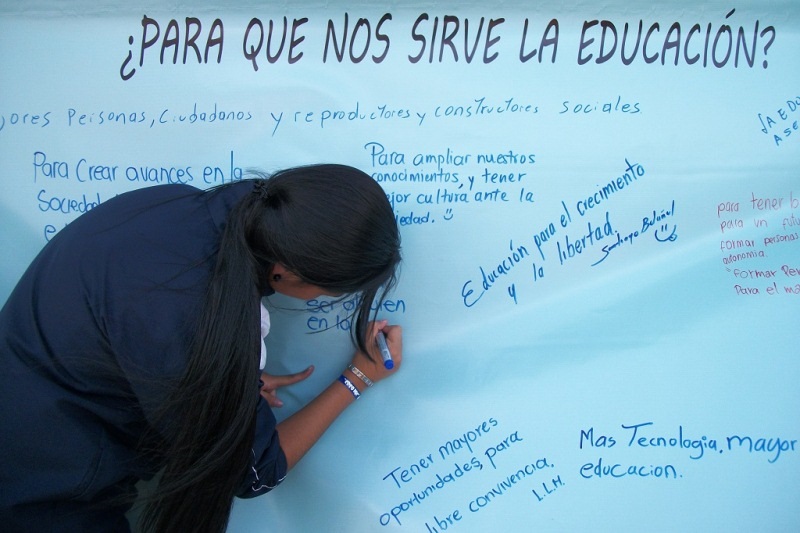 ¿PARA QUE NOS SIRVE LA EDUCACIÓN?
Personas, Ciudadanos y reproductores y constructores sociales.
Para Crear avances en la
Sociedad
Para ampliar nuestros
conocimientos, y tener
cultura ante la
Educación para el crecimiento
y la libertad.
Santiago
para tener
para un
formar personas
autonomia.
"Formar
Para el
ser alguien
en la
Tener mayores
oportunidades, para
libre convivencia.
I.L.H.
Mas Tecnologia, mayor
educacion.